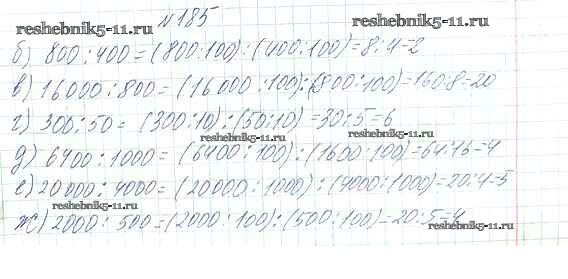 №185
reshebnik5-11.ru
reshebnik5-11.ru
б) 800:400=(800:100):(400:100)=8:4=2
в) 16000:800=(16000:100):(800:100)=160:8=20
reshebnik5-11.ru
г) 300:50=(300:10):(50:10)=30:5=6
reshebnik5-11.ru
д) 6400:1000=(6400:100):(1600:100)=64:16=4
е) 20000:4000=(20000:1000):(4000:1000)=20:4=5
reshebnik5-11.ru
ж) 2000:500=(2000:100):(500:100)=20:5=4
reshebnik5-11.ru